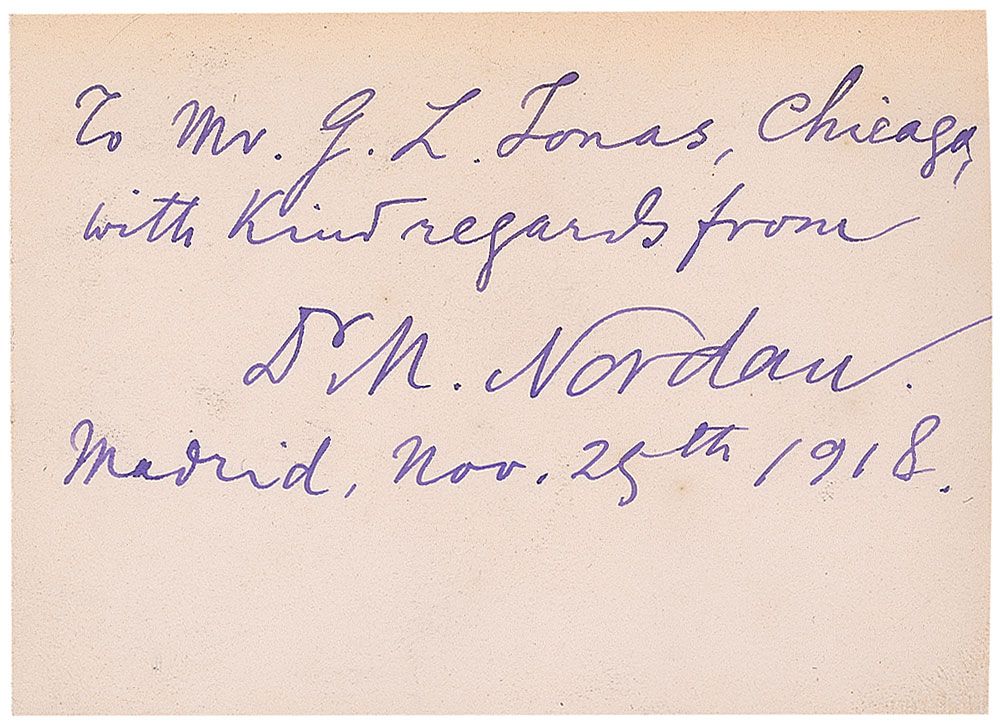 To Mr. G. L. Jonas, Chicago,
with Kind regards from
Dr M. Nordau.
Madrid, Nov. 25th 1918.